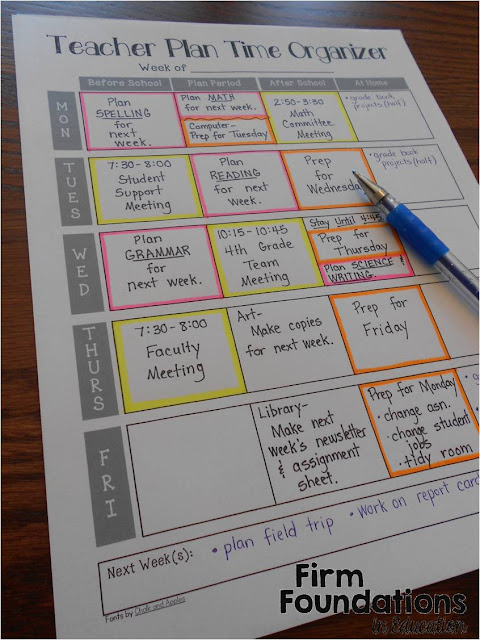 Teacher Plan Time Organizer
Week of
Before School
Plan Period
After School
At Home
MON
Plan
SPELLING
for
next
week.
Plan MATH
for next week.
Computer-
Prep for Tuesday
2:50-3:30
Math
Committee
Meeting
• grade book
projects (half)
TUES
7:30-8:00
Student
Support
Meeting
Plan
READING
for next
week.
Prep
for
Wednesday
• grade book
projects (half)
WED
Plan
GRAMMAR
for
next week.
10:15-10:45
4th Grade
Team
Meeting
Stay Until 4:45
Prep for
Thursday
Plan SCIENCE &
WRITING.
THURS
7:30-8:00
Faculty
Meeting
Art-
Make copies
for next week.
Prep for
Friday
FRI
Library-
Make next
week's newsletter
& assignment
sheet.
Prep for Monday
• change asn.
• change student
jobs
• tidy room
Next Week(s):
• plan field trip
• work on report card
Fonts by Chalk and Apples
Firm
Foundations
in education